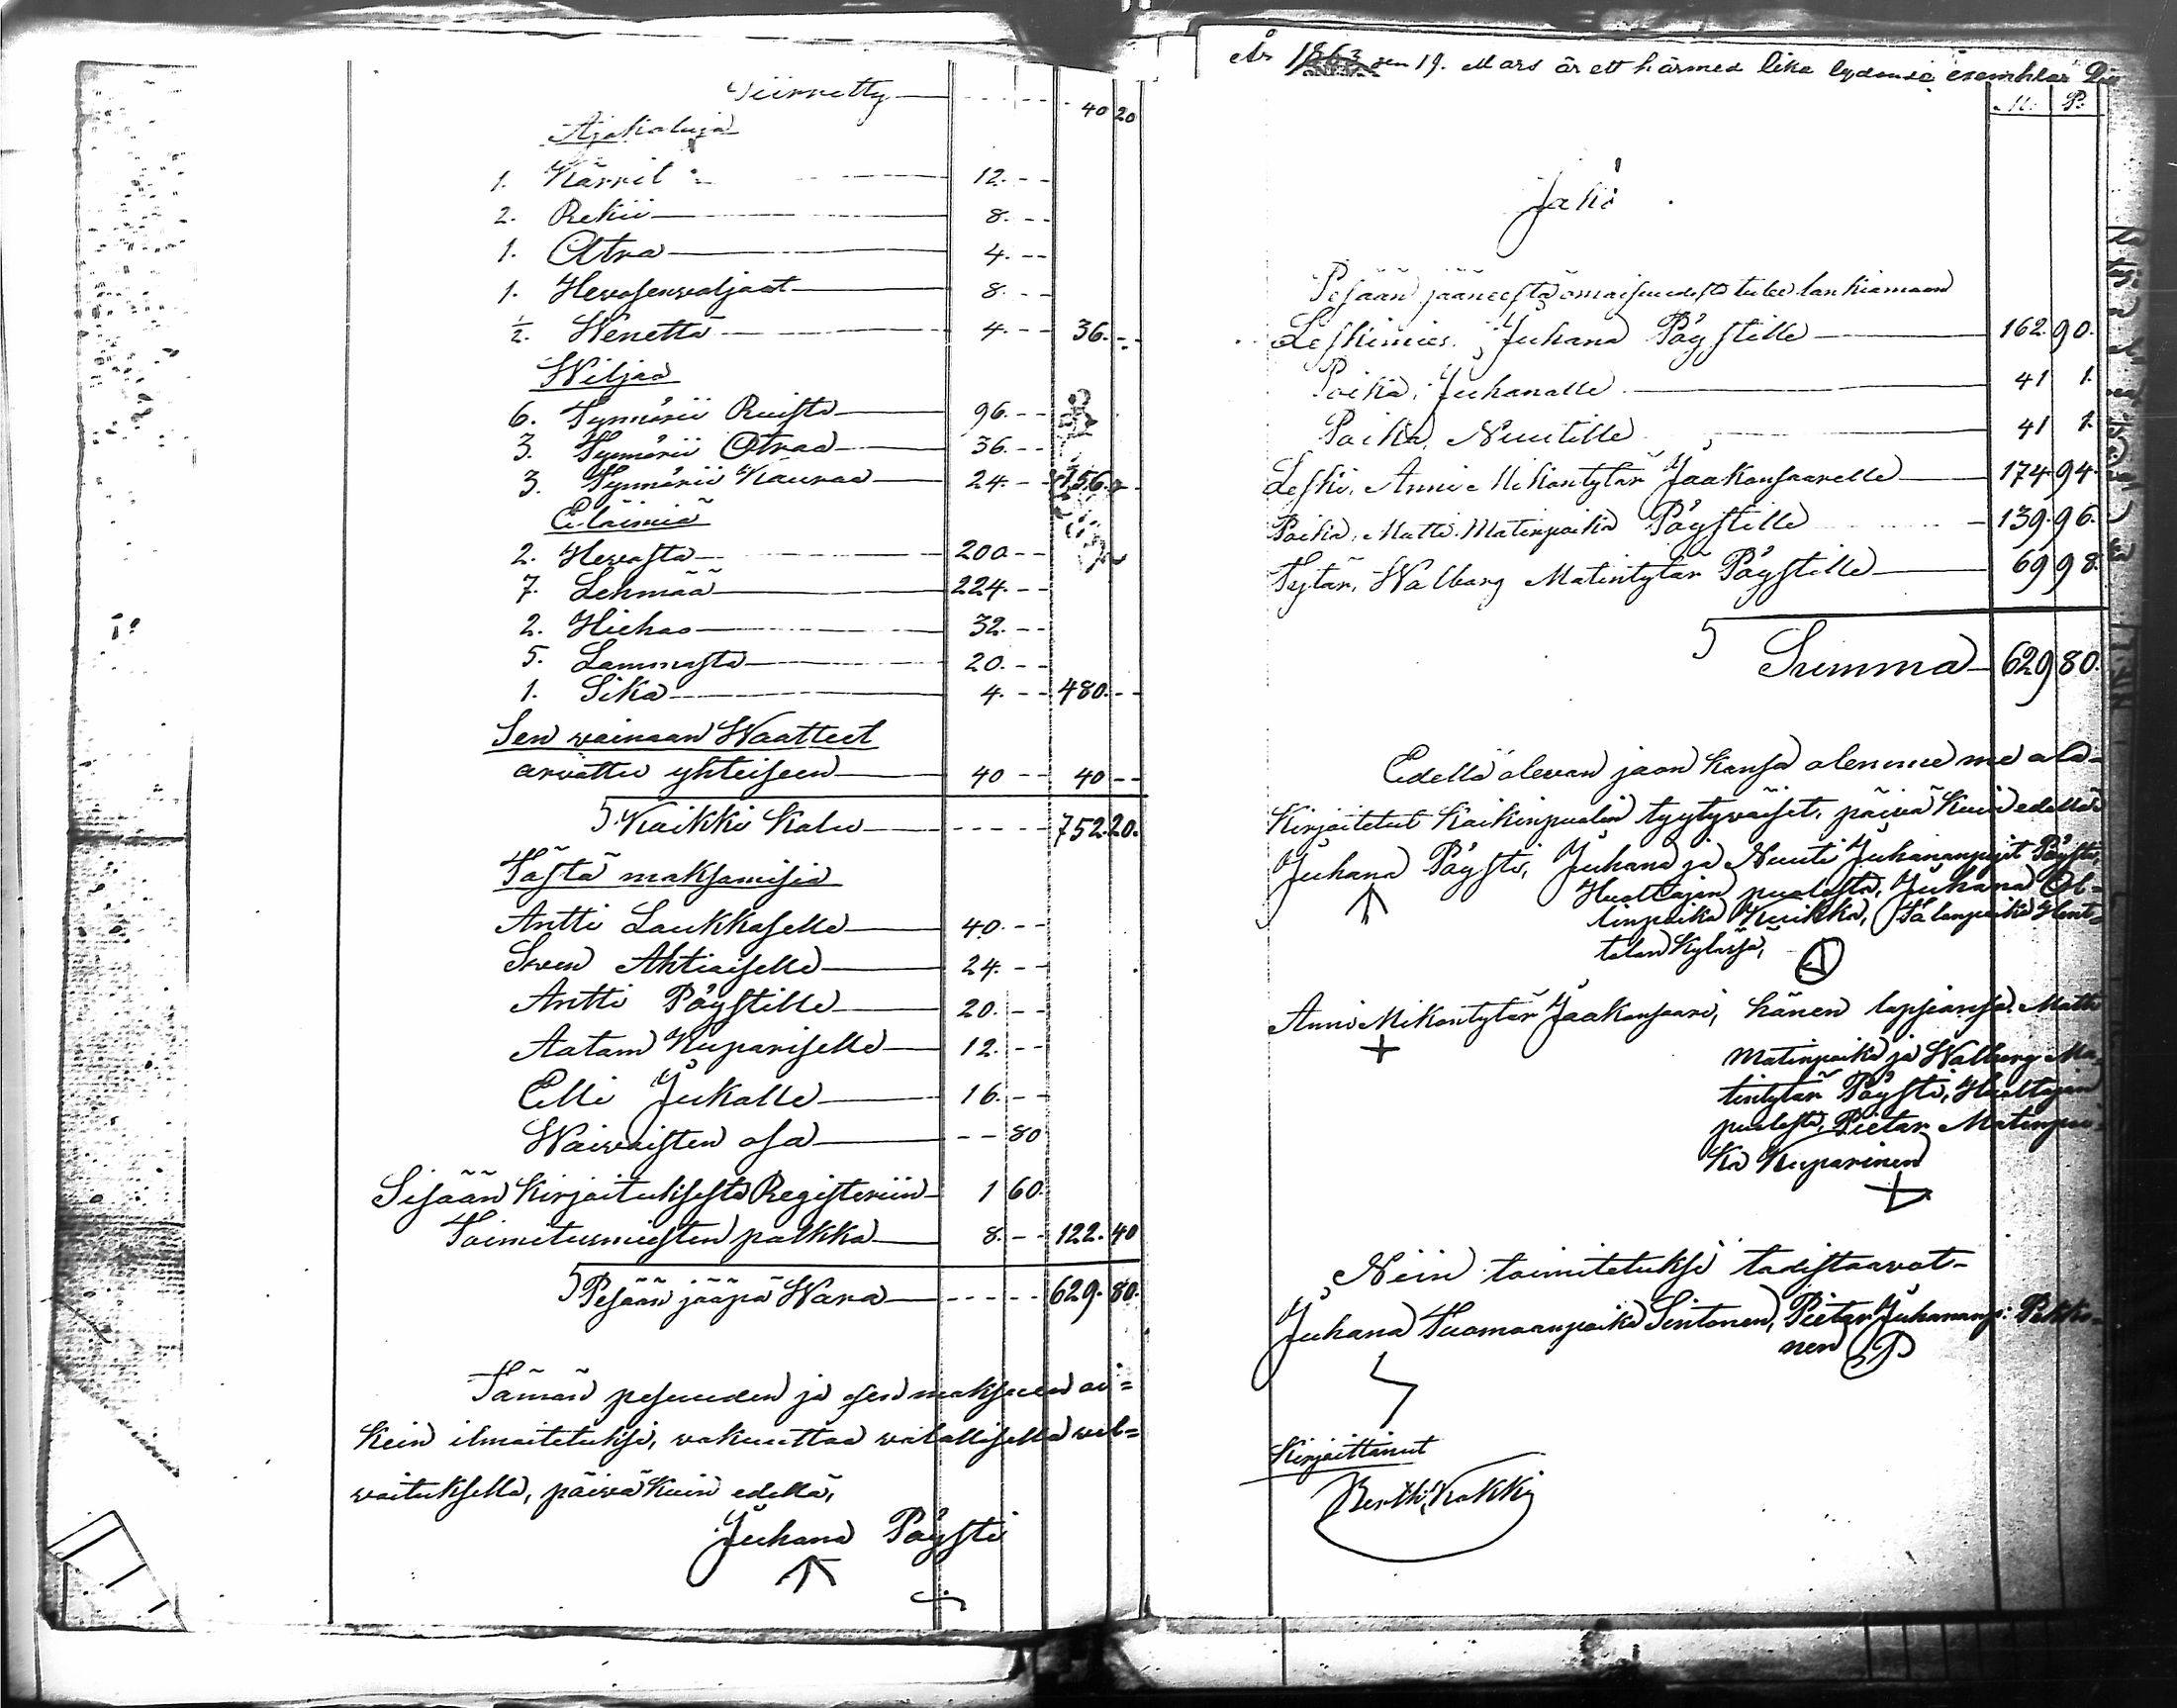 Siirretty 40 20
Ajokaluja
1. Kärrit 12.
2. Rekii 8.
1. Atra 4.
1. Hevosenvaljaat 8.
½. Wenettä 4. 36.
Wiljaa
6. Tynnörii Ruista 96.
3. Tynnörii Otraa 36.
3. Tynnörii Kauraa 24. 156.
Eläimiä
2. Hevosta 200
7. Lehmää 224.
2. Hiehao 32.
5. Lammasta 20.
1. Sika 4. 480.
Sen wainaan Waatteet
arvattu yhteiseen 40 40
Kaikki Kalu 752. 20.
Tästä maksamisia
Antti Laukkaselle 40.
Sven Ahtiaiselle 24.
Antti Pöystille 20.
Aatam Kupariselle 12.
Elli Jukalle 16.
Waivaisten osa 80
Sisään Kirjoituksesta Registeriin 1 60.
Toimitusmiesten palkka 8. 122. 40
Pesään jääpä Wara 629. 80.
Tämän pesuuden ja sen maksuen oi=
kein ilmoitetuksi, vakuuttaa valallisella vel=
voituksella, päivä Kuin edellä,
Juhana Pöysti
År 1863 den 19. Mars är ett härmed lika lydande exemplar
M: P:
Jako
Pesään jääneestä omaisuudesta tulee lankiamaan
Leskimies. Juhana Pöystille 162. 90.
Poika, Juhanalle 41 1.
Poika, Nuutille 41 1.
Leski, Anni Mikontytär Jaakonsaarelle 174. 94.
Poika, Matti Matinpoika Pöystille 139. 96.
Tytär, Walborg Matintytär Pöystille 69 98.
Summa 629 80.
Edellä olevan jaon kansa olemme me ala-
Kirjoitetut Kaikinpuolin tyytyväiset, päivä Kuin edellä
Juhana Pöysti, Juhana ja Nuuti Juhananpojat Pöysti,
Huoltajan puolesta, Juhana Ol-
linpoika Kuikka, Talonpoika Hent-
talan Kylässä,
Anni Mikontytär Jaakonsaari, hänen lapsiansa. Matti
Matinpoika ja Walborg Ma-
tintytär Pöysti, Huoltajan
puolesta, Pietar Matinpoi-
ka Kuparinen
Niin toimitetuksi todistaavat-
Juhana Tuomaanpoika Sintonen, Pietar Juhananp: Pekko-
nen P
Kirjoittanut
Berthil Kokki